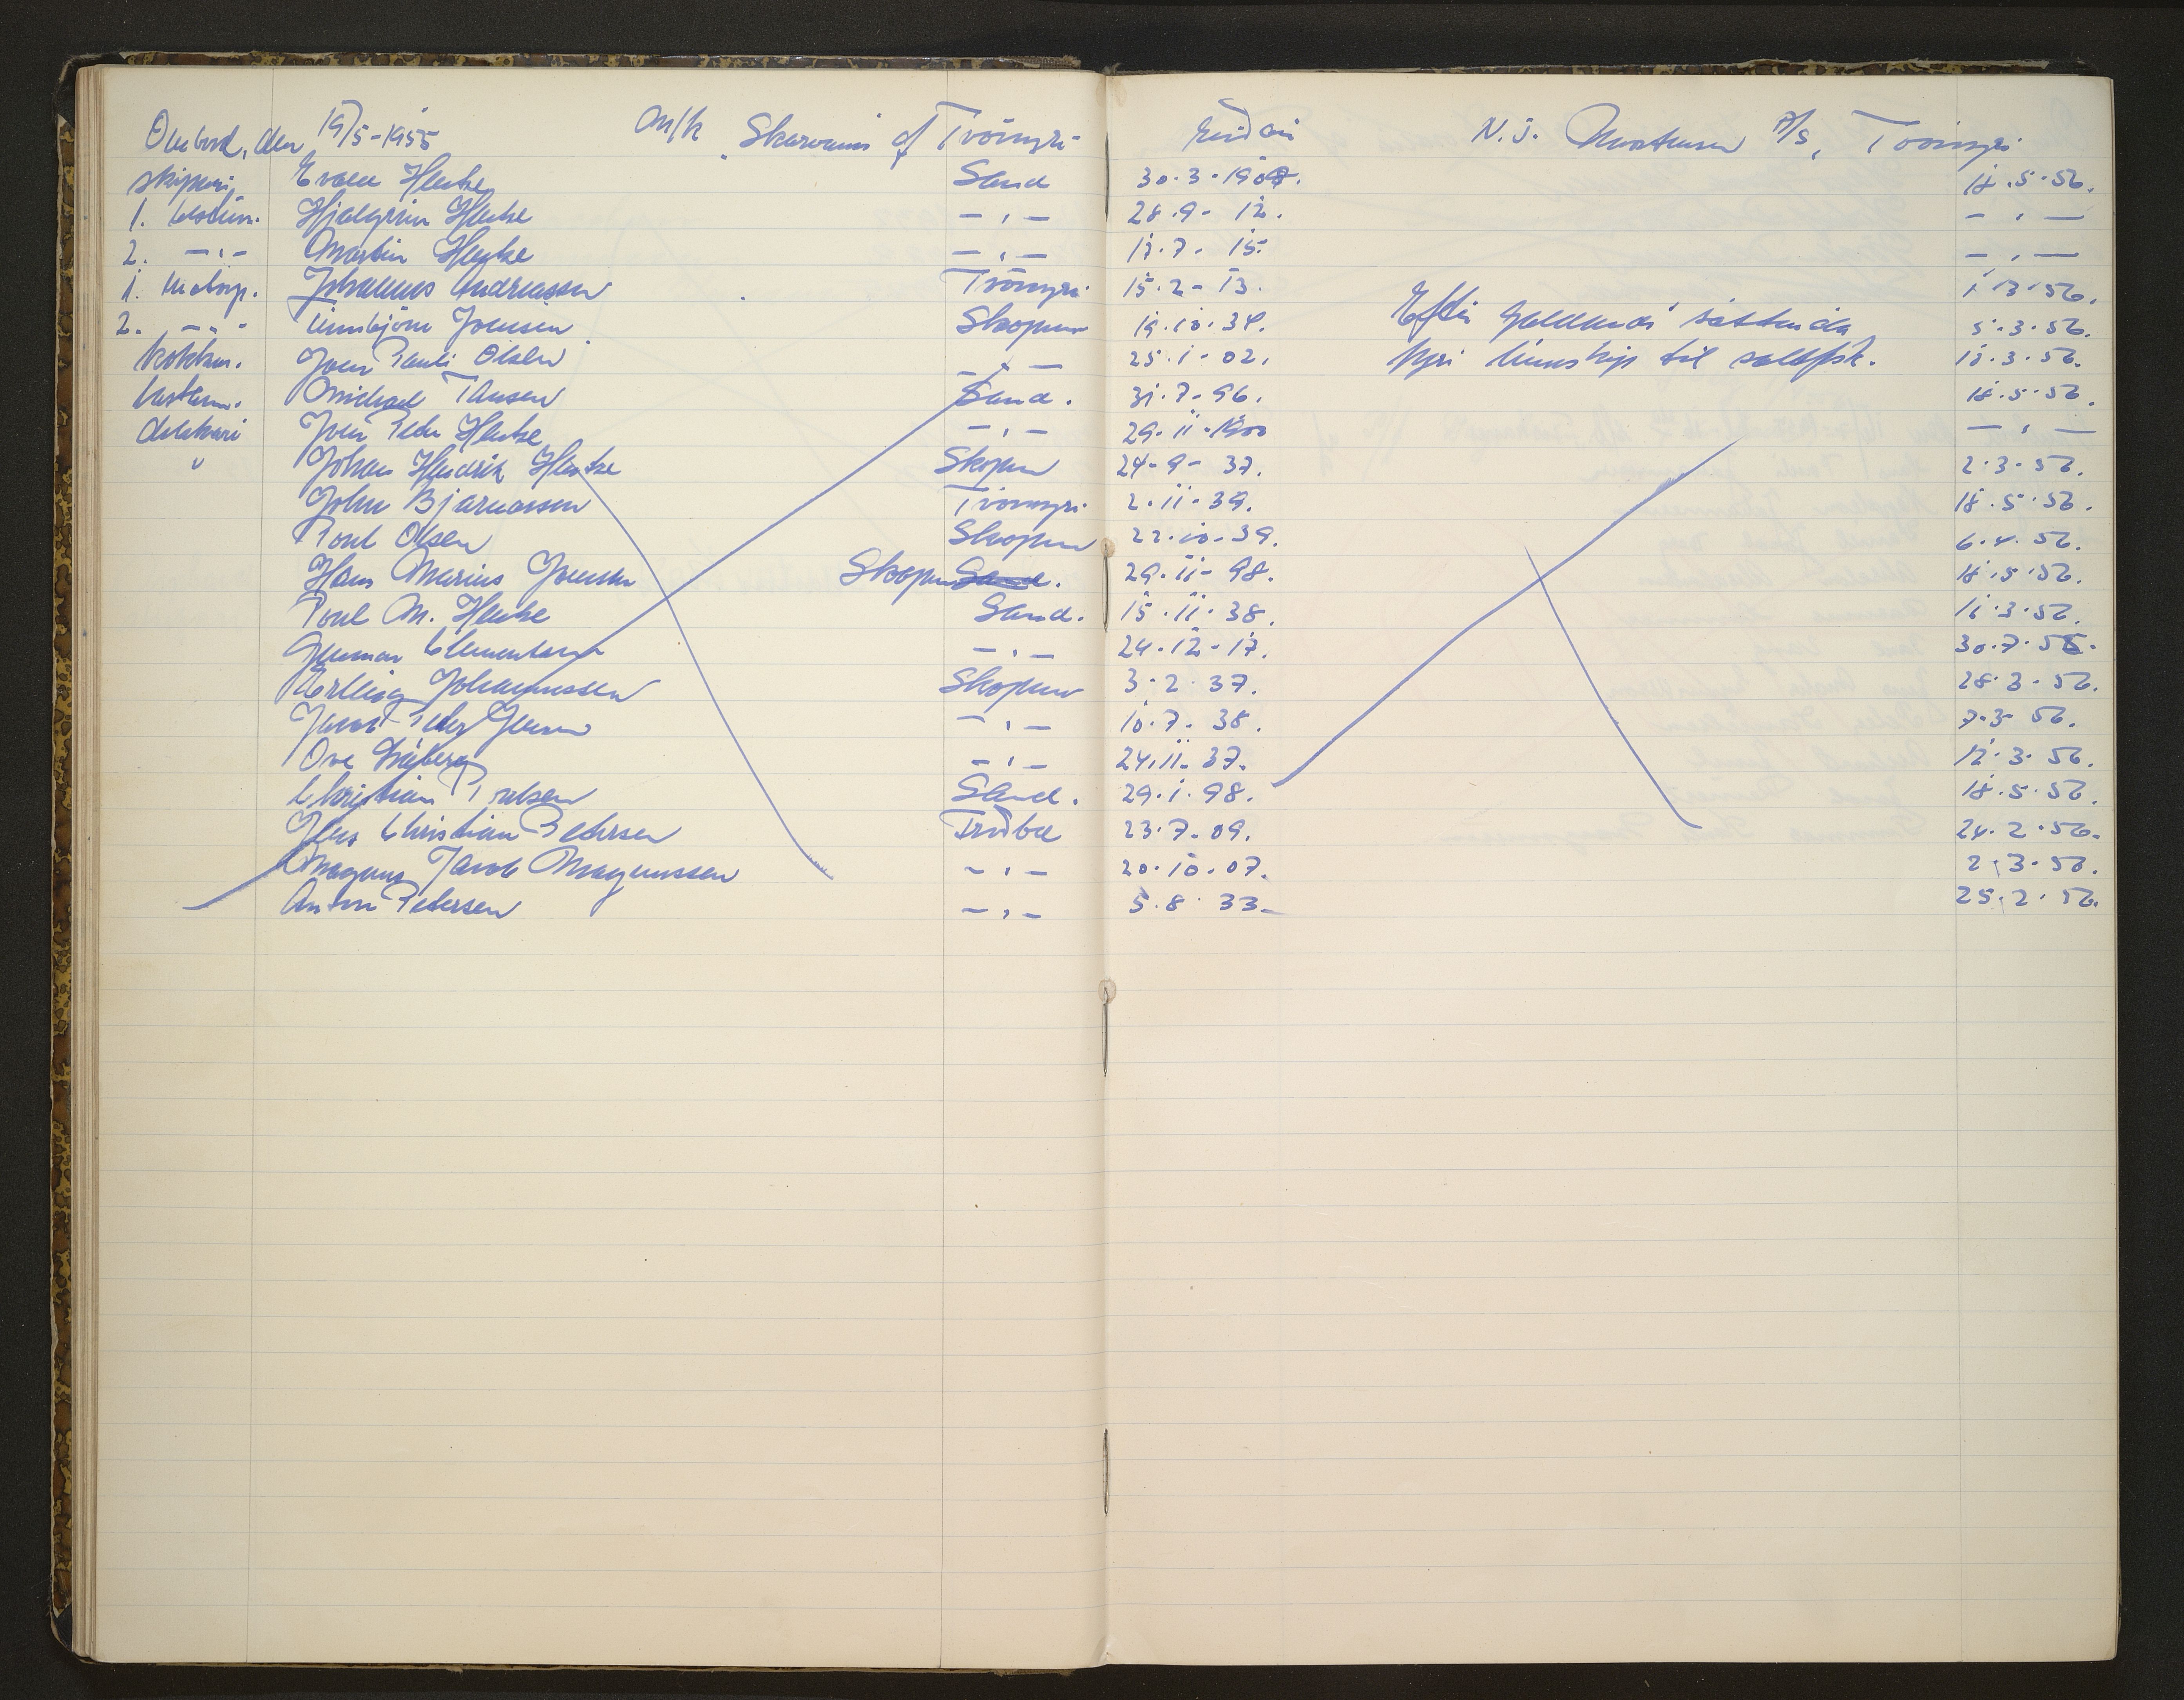 Umborð, den 19/5-1955 M/k "Skarvanes" of Tvöroyri Eigari N. J. Mortensen P/s, Tvöroyri
skipari Evald Hentze Sand 30.3.1907. 18.5.56.
1. bestim. Hjalgrim Hentze - " - 28.9- 12. - " -
2. - " - Martin Hentze - " - 17.7- 15. - " -
1. motorp. Johannes Andreassen Tvöroyri 15.2- 13. 1.3.56.
2. - " - Finnbjörn Joensen Skopun 19.10.34. Eftir galdandi sáttmála 5.3.56.
kokkur. Joen Pauli Olsen - " - 25.1-02. fyri línuskip til saltfisk. 12.3.56.
bestem. Michael Clausen Sand. 31.7-96. 18.5.56.
dekkari Joen Peter Hentze - " - 29.11-1900 - " -
" Johan Hendrik Hentze Skopun 24-9- 37. 2.3-56.
John Bjarnason Tvöroyri 2.11-39. 18.5.56.
Poul Olsen Skopun 22.10-39. 6.4.56.
Hans Marius Joensen Skopun Sand. 29.11-98. 18.5.56.
Poul M. Hentze Sand. 15.11.38. 11.3.56.
Clementsen - " - 24.12-17. 30.7.56.
Erling Johannessen Skopun 3.2.37. 28.3-56.
Jacob Peter Jensen - " - 10.7. 38. 7.3- 56.
Ove - " - 24.11.37. 12.3.56.
Christian Poulsen Sand. 29.1.98. 18.5.56.
Jens Christian Petersen Froðba 23.7.09. 24.2.56.
Magnus Jacob Magnussen - " - 20.10.07. 2.3.56.
Anton Petersen - " - 5.8.33- 25.2.56.